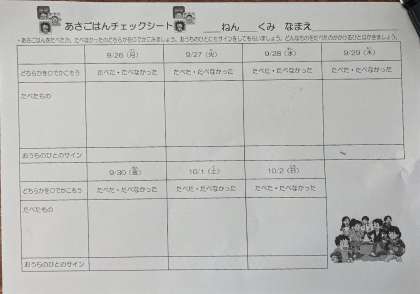 あさごはんチェックシート ＿＿ねん＿＿くみ なまえ
・あさごはんをたべたか、たべなかったのどちらかを○でかこみましょう。おうちのひとにもサインをしてもらいましょう。どんなものをたべたのかかけるひとはかきましょう。
9/26（月） 9/27（火） 9/28（水） 9/29（木）
どちらかを○でかこもう たべた・たべなかった たべた・たべなかった たべた・たべなかった たべた・たべなかった
たべたもの
おうちのひとのサイン
9/30（金） 10/1（土） 10/2（日）
どちらかを○でかこもう たべた・たべなかった たべた・たべなかった たべた・たべなかった
たべたもの
おうちのひとのサイン